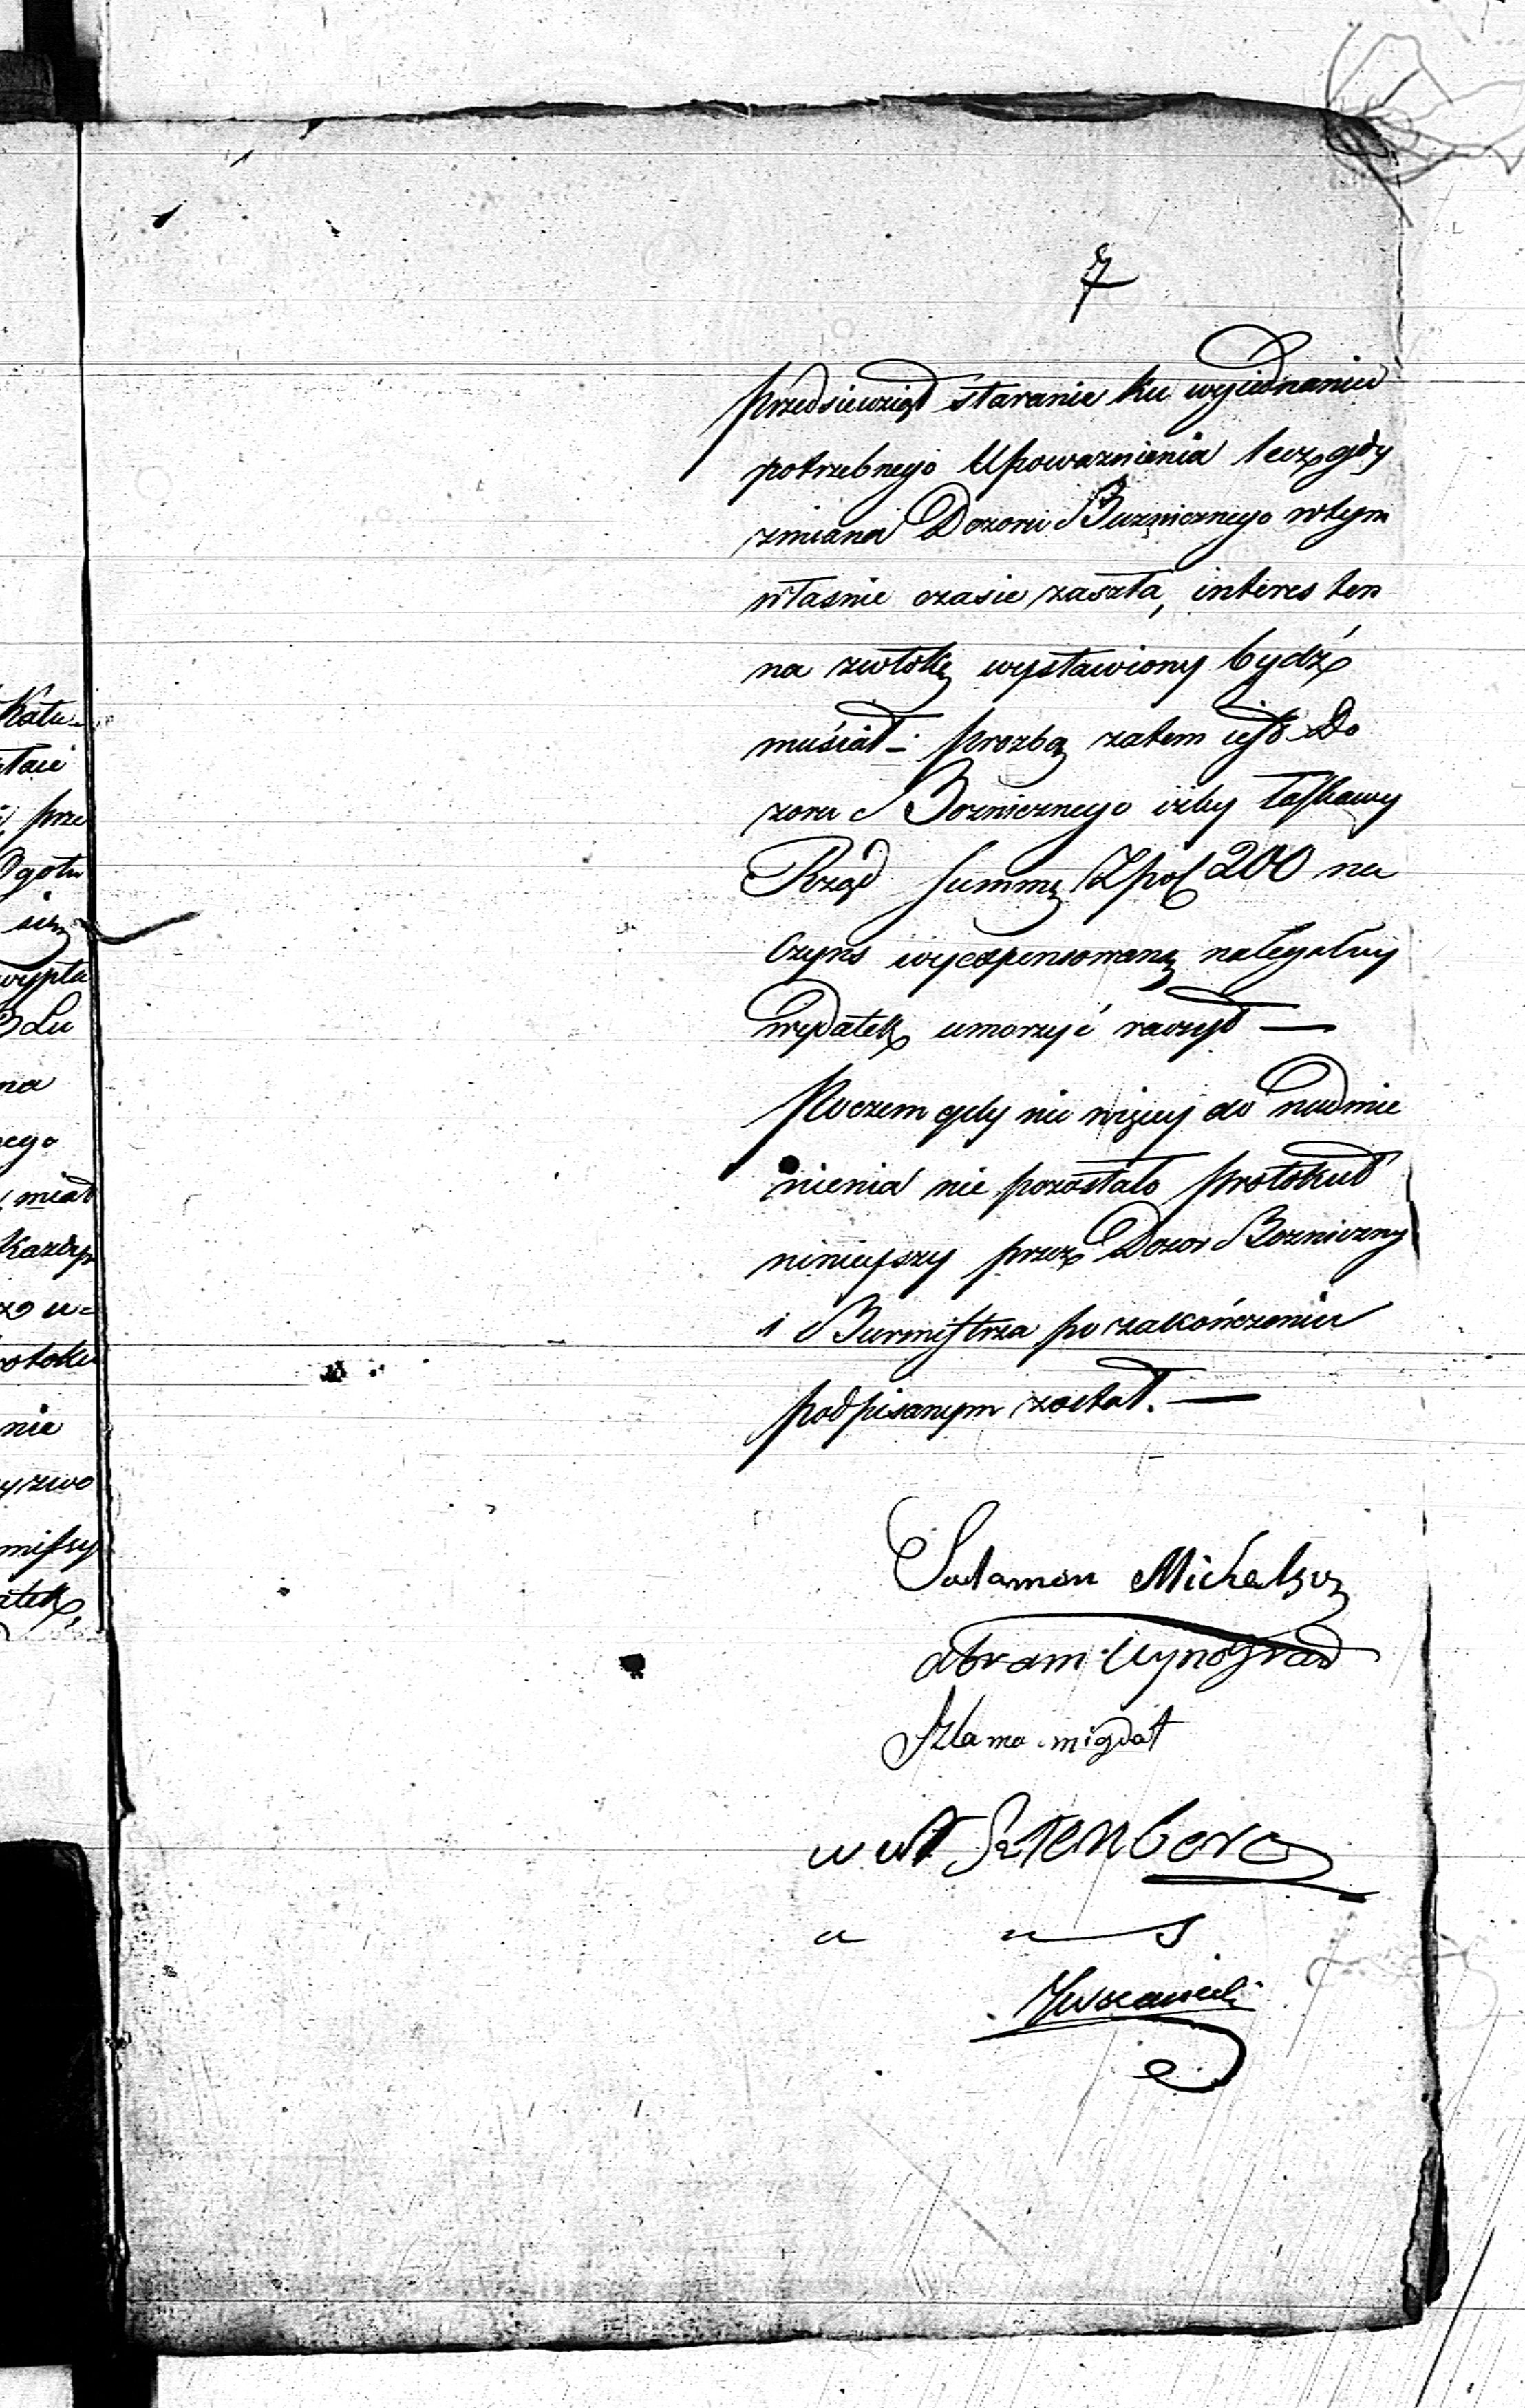 7
przedsiewziął staranie ku wyiednaniu
potrzebnego Upoważnienia lecz gdy
zmiana Dozoru Buzniczego w tym
własnie czasie zaszła, interes ten
na zwłokę wystawiony bydź
musiał – prozbą zatem iest Do
zoru Bozniczego iżby Łaskawy
Rząd Summę Zpol 200 na
Czyns wyexpensowaną na legalny
wydatek umorzyć raczył —
Poczem gdy nic więcy do nadmie
nienia nie pozostało protokuł
ninieyszy przez Dozor Bozniczny
i Burmistrza po zakończeniu
podpisanym został. —
Salamon Michelson
abram Wynograd
Szlama migdał
Wolf Sztenberg
Katu
staie
prze
goto
się
wypła
Lu
na
ego
miał
Każdy
u=
otoku
nie
yzwo
missy
atek,